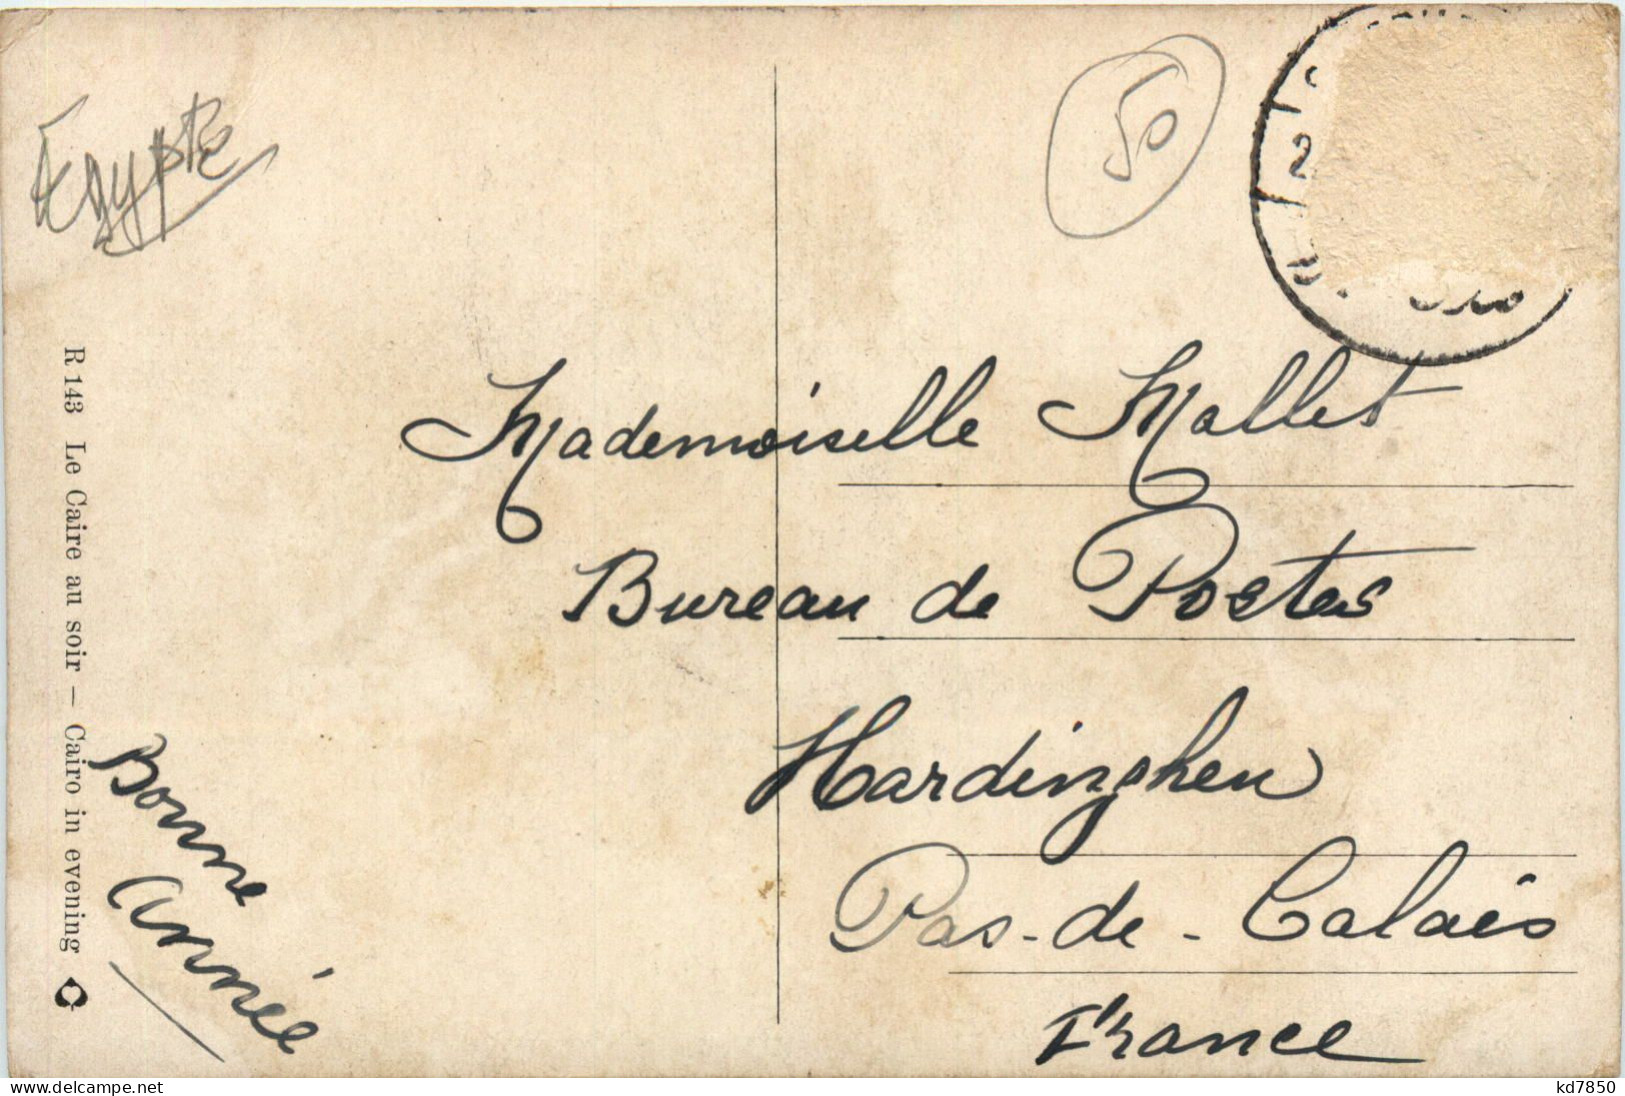 Egypte
50
2
Mademoiselle Mallet
Bureau de Postes
Hardinghen
Pas-de-Calais
France
Bonne
année
R 143 Le Caire au soir — Cairo in evening
www.delcampe.net
kd7850